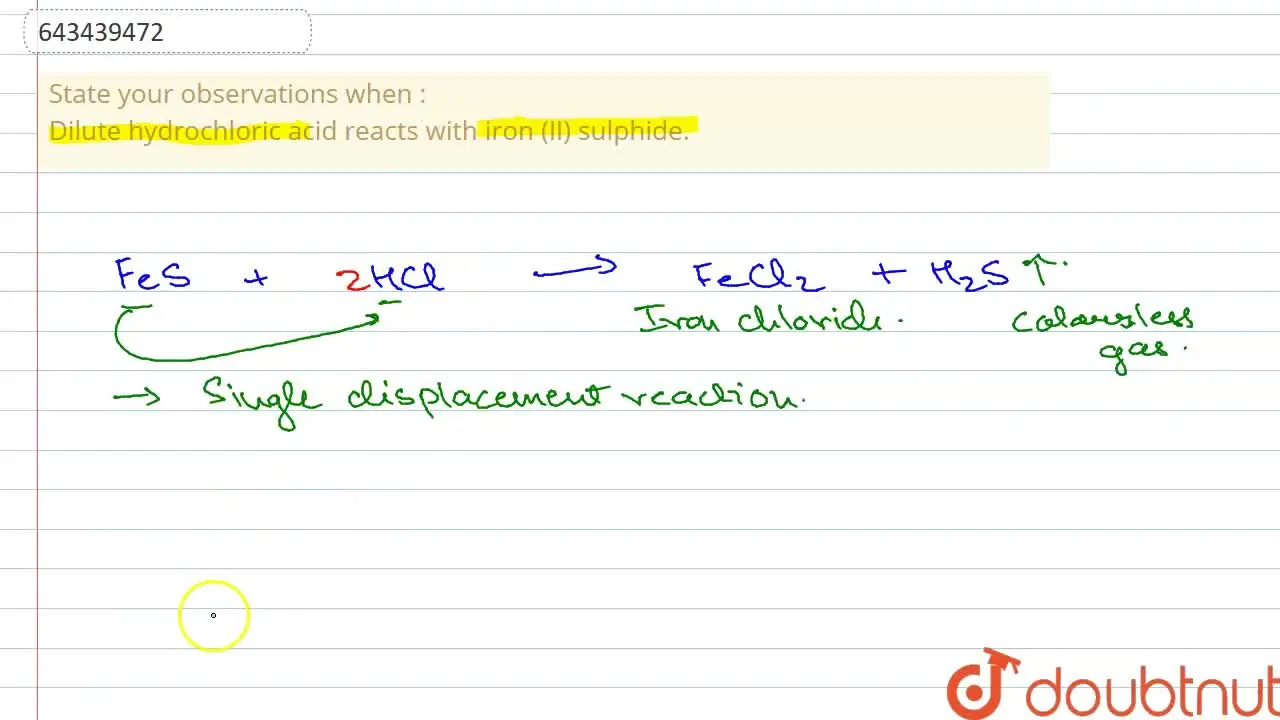 643439472
State your observations when :
Dilute hydrochloric acid reacts with iron (II) sulphide.
FeS + 2HCl → FeCl₂ + H₂S ↑.
Iron chloride. colourless
gas.
→ Single displacement reaction.
doubtnut